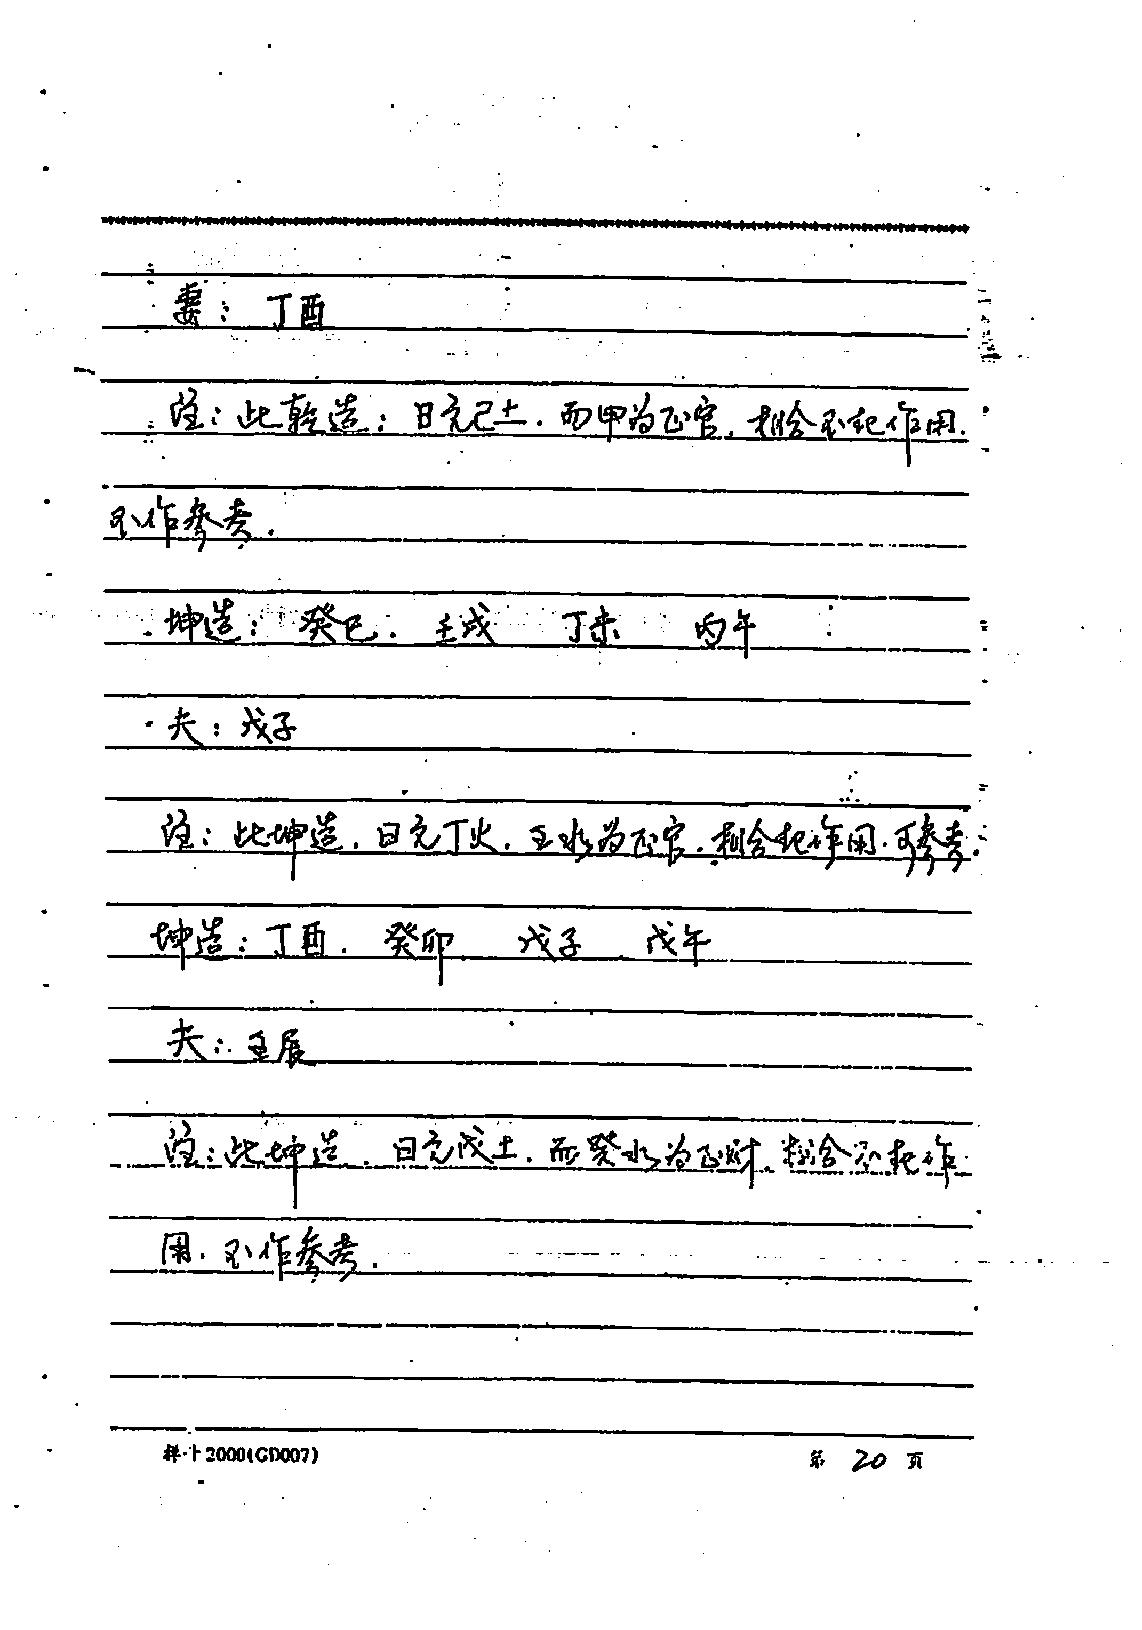 妻：丁酉
注：此乾造：日元己土．而甲为正官．相合不起作用．
不作参考．
坤造：癸巳．壬戌 丁未 丙午
夫：戊子
注：此坤造．日元丁火．壬水为正官．相合起作用．可参考．
坤造：丁酉．癸卯 戊子 戊午
夫：壬辰
注：此坤造．日元戊土．而癸水为正财．相合不起作
用．不作参考．
2000(GD007) 第 20 页